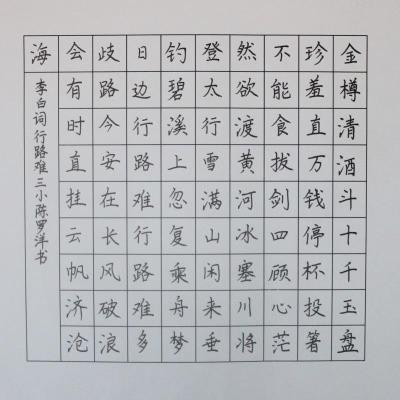 金樽清酒斗十千玉盘
珍羞直万钱停杯投箸
不能食拔剑四顾心茫
然欲渡黄河冰塞川将
登太行雪满山闲来垂
钓碧溪上忽复乘舟梦
日边行路难行路难多
歧路今安在长风破浪
会有时直挂云帆济沧
海
李白词行路难三小陈罗洋书